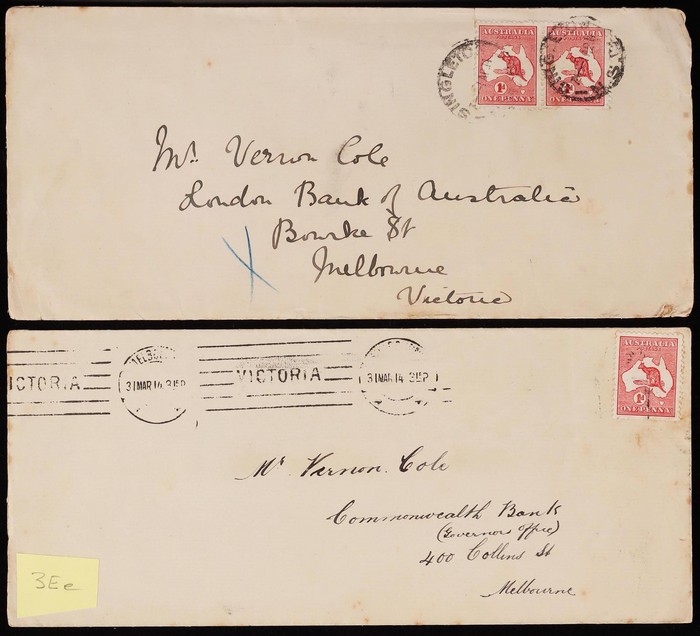 AUSTRALIA AUSTRALIA
1d
ONE PENNY ONE PENNY
SINGLETON
Mr. Vernon Cole
London Bank of Australia
Bourke St
Melbourne
Victoria
VICTORIA
31 MAR 14 3 15P
VICTORIA
31 MAR 14 3 15P
AUSTRALIA
1d
ONE PENNY
Mr Vernon Cole
Commonwealth Bank
(Governors Office)
400 Collins St
Melbourne
3Ee